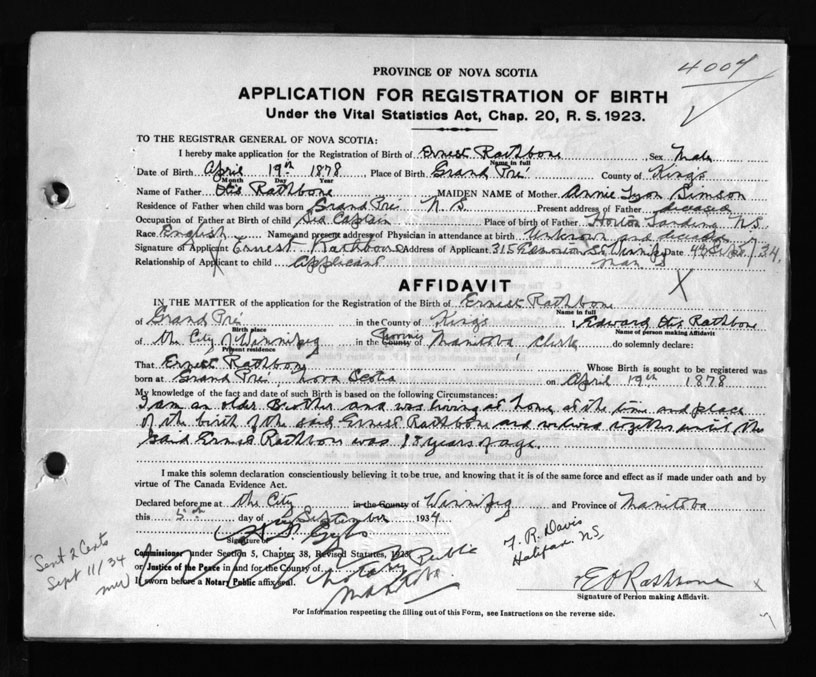 4007
PROVINCE OF NOVA SCOTIA
APPLICATION FOR REGISTRATION OF BIRTH
Under the Vital Statistics Act, Chap. 20, R. S. 1923.
TO THE REGISTRAR GENERAL OF NOVA SCOTIA:
I hereby make application for the Registration of Birth of Ernest Rathbone Sex Male
Name in full
Date of Birth April 19th 1878 Place of Birth Grand Pré County of Kings
Month Day Year
Name of Father Otis Rathbone MAIDEN NAME of Mother Annie Lyon Simson
Residence of Father when child was born Grand Pré N.S. Present address of Father
Occupation of Father at Birth of Child Sea Captain Place of Birth of Father Horton Landing N.S.
Race English Name and present address of Physician in attendance at birth Unknown and
Signature of Applicant Ernest Rathbone Address of Applicant 315 St Winnipeg Date
Relationship of Applicant to child Applicant Man
AFFIDAVIT
IN THE MATTER of the application for the Registration of the Birth of Ernest Rathbone
Name in full
of Grand Pré in the County of Kings I, Edward Otis Rathbone
Birth place Name of person making Affidavit
of the City of Winnipeg in the County Province of Manitoba Clerk do solemnly declare:
Present residence
That Ernest Rathbone Whose Birth is sought to be registered was
born at Grand Pré Nova Scotia on April 19th 1878
My knowledge of the fact and date of such Birth is based on the following Circumstances:
I am an older Brother and was living at home at the time and place
of the birth of the said Ernest Rathbone and we lived together until the
said Ernest Rathbone was 18 years of age
I make this solemn declaration conscientiously believing it to be true, and knowing that it is of the same force and effect as if made under oath and by
virtue of The Canada Evidence Act.
Declared before me at the City in the County of Winnipeg and Province of Manitoba
this 5th day of September 1934
Signature of
F. R. Davis
Halifax N.S.
Commissioner under Section 5, Chapter 38, Revised Statutes, 1923
or Justice of the Peace in and for the County of
Notary Public
Manitoba
If sworn before a Notary Public affix seal.
Sent 2 Certs
Sept 11/34
E O Rathbone
Signature of Person making Affidavit.
For Information respecting the filling out of this Form, see Instructions on the reverse side.